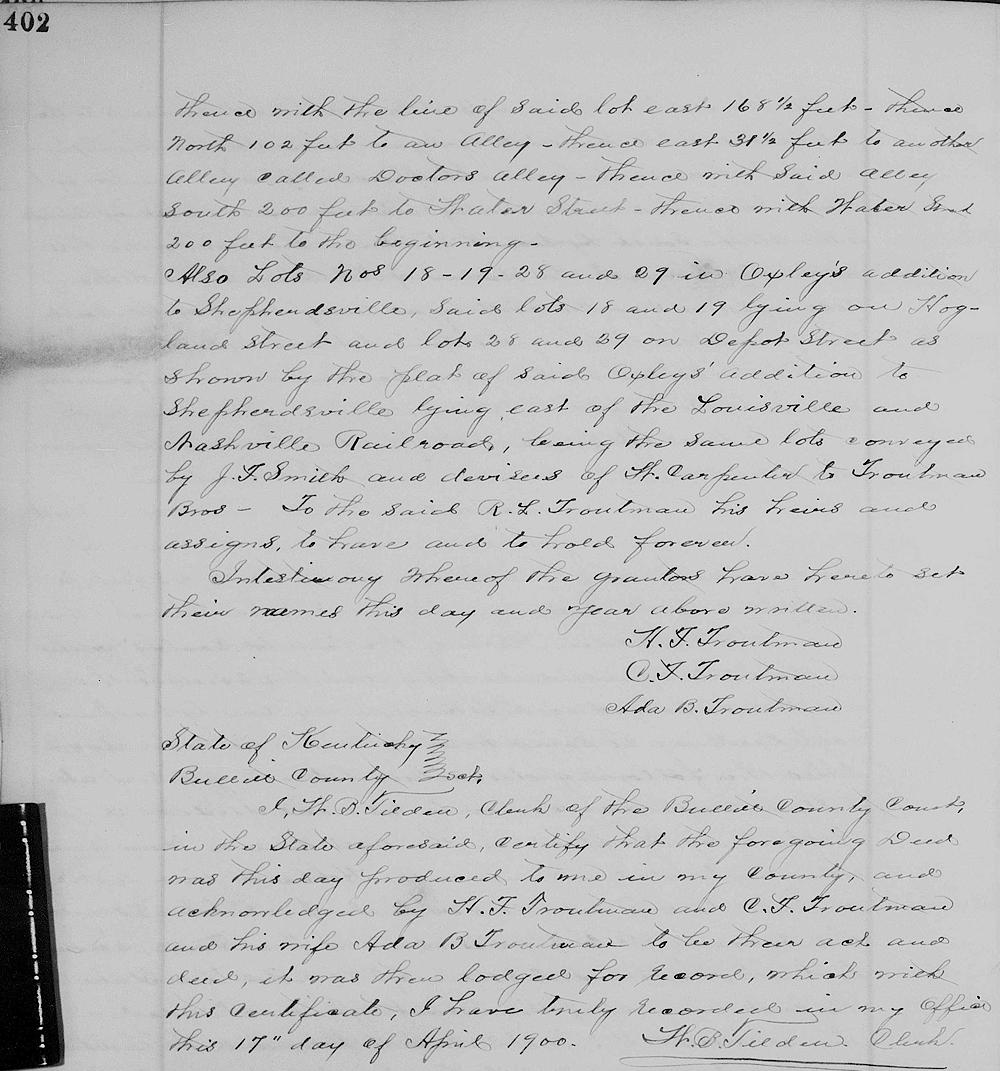 402
thence with the line of said lot east 168 1/2 feet - thence
North 102 feet to an Alley - thence east 31 1/2 feet to another
Alley called Doctors Alley - thence with said Alley
South 200 feet to Water Street - thence with Water Street
200 feet to the beginning -
Also Lots Nos 18 - 19 - 28 and 29 in Oxley's addition
to Shepherdsville, said lots 18 and 19 lying on Hog-
land Street and lots 28 and 29 on Depot Street as
shown by the plat of said Oxley's' addition to
Shepherdsville lying east of the Louisville and
Nashville Railroad, being the same lots conveyed
by J. F. Smith and devisees of W. Carpenter to Troutman
Bros - To the said R. L. Troutman his heirs and
assigns, to have and to hold forever.
Intestimony Whereof the grantors have hereto set
their names this day and year above written.
H. F. Troutman
C. F. Troutman
Ada B. Troutman
State of Kentucky
Bullitt County sct.
I, W. B. Tilden, Clerk of the Bullitt County Court,
in the State aforesaid, certify that the foregoing Deed
was this day produced to me in my County, and
acknowledged by H. F. Troutman and C. F. Troutman
and his wife Ada B Troutman to be their act and
deed, it was then lodged for record, which with
this certificate, I have truly recorded in my office
this 17" day of April 1900. W. B. Tilden Clerk.